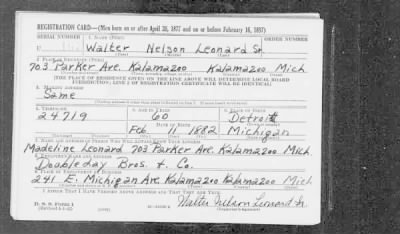 REGISTRATION CARD—(Men born on or after April 28, 1877 and on or before February 16, 1897)
SERIAL NUMBER 1. NAME (Print) ORDER NUMBER
U Walter Nelson Leonard Sr.
2. PLACE OF RESIDENCE (Print)
703 Parker Ave. Kalamazoo Kalamazoo Mich
[THE PLACE OF RESIDENCE GIVEN ON THE LINE ABOVE WILL DETERMINE LOCAL BOARD
JURISDICTION; LINE 2 OF REGISTRATION CERTIFICATE WILL BE IDENTICAL]
3. MAILING ADDRESS
Same
4. TELEPHONE 5. AGE IN YEARS 6. PLACE OF BIRTH
24719 60 Detroit
DATE OF BIRTH
Feb. 11 1882 Michigan
7. NAME AND ADDRESS OF PERSON WHO WILL ALWAYS KNOW YOUR ADDRESS
Madeline Leonard 703 Parker Ave. Kalamazoo Mich.
8. EMPLOYER'S NAME AND ADDRESS
Doubleday Bros. & Co.
9. PLACE OF EMPLOYMENT OR BUSINESS
241 E. Michigan Ave. Kalamazoo Kalamazoo Mich.
I AFFIRM THAT I HAVE VERIFIED ABOVE ANSWERS AND THAT THEY ARE TRUE.
D. S. S. Form 1
Walter Nelson Leonard Sr.